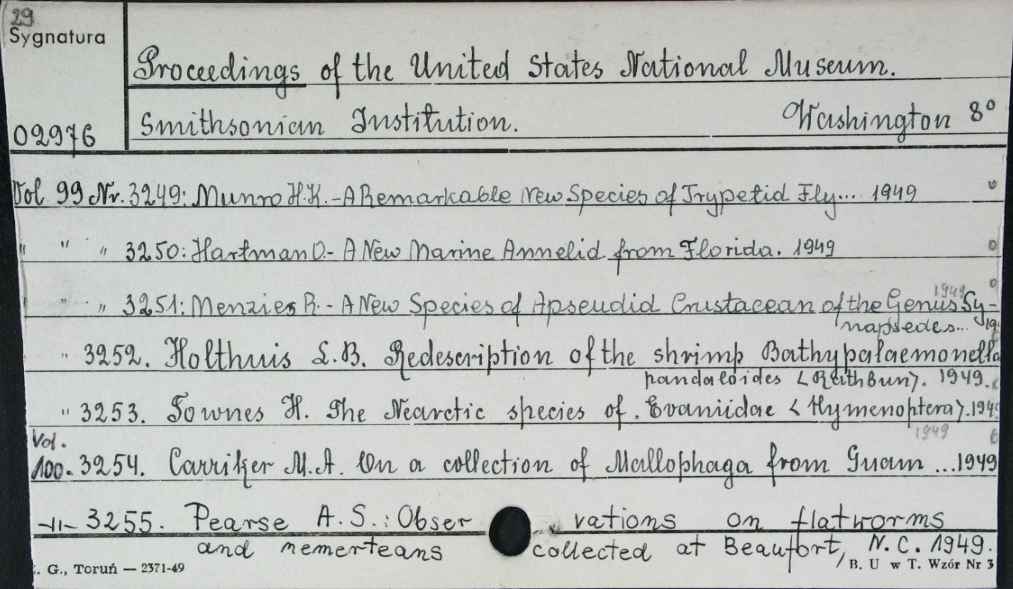 29
Sygnatura
Proceedings of the United States National Museum.
02976
Smithsonian Institution. Washington 8°
Vol 99 Nr. 3249: Munro H.K. - A Remarkable New Species of Trypetid Fly... 1949
" " " 3250: Hartman O. - A New Marine Annelid from Florida. 1949
" " 3251: Menzies R. - A New Species of Apseudid Crustacean of the Genus Sy-
1949
napsedes...
" 3252. Holthuis L.B. Redescription of the shrimp Bathypalaemonella
pandaloides (Rathbun). 1949.
" 3253. Townes H. The Nearctic species of. Evaniidae (Hymenoptera). 194
1949
Vol.
100. 3254. Carriker M.A. On a collection of Mallophaga from Guam ... 1949
-"- 3255. Pearse A.S.: Obser vations on flatworms
and nemerteans collected at Beaufort, N.C. 1949.
. G., Toruń — 2371-49
B. U w T. Wzór Nr 3